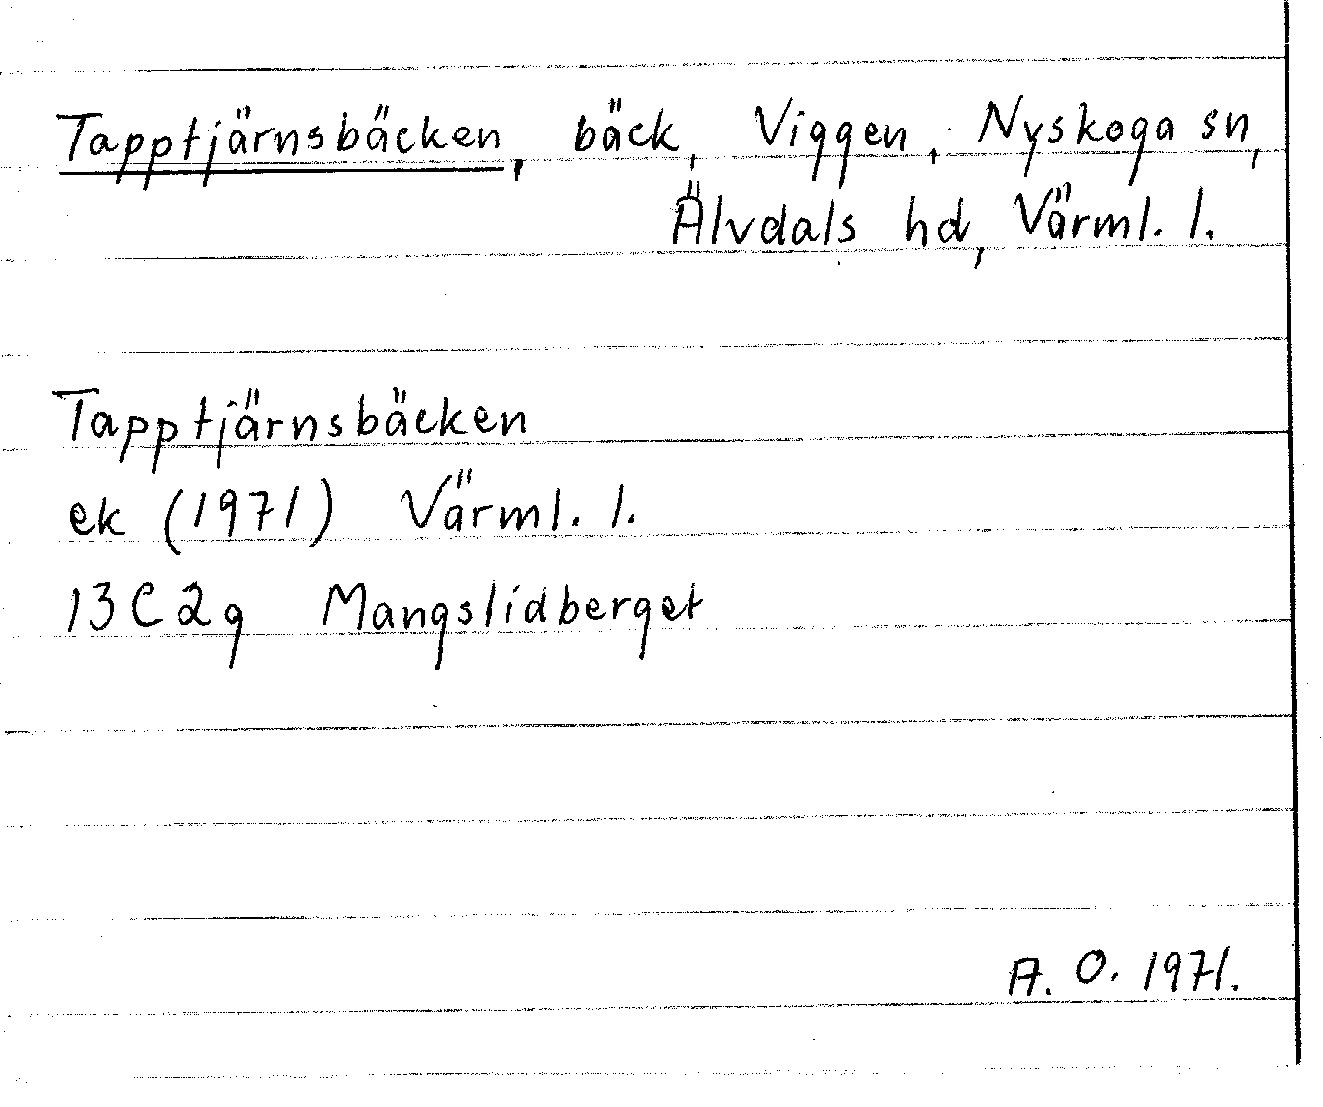 Tapptjärnsbäcken, bäck, Viggen, Nyskoga sn,
Älvdals hd, Värml. l.
Tapptjärnsbäcken
ek (1971) Värml. l.
13C2g Mangslidberget
A. O. 1971.